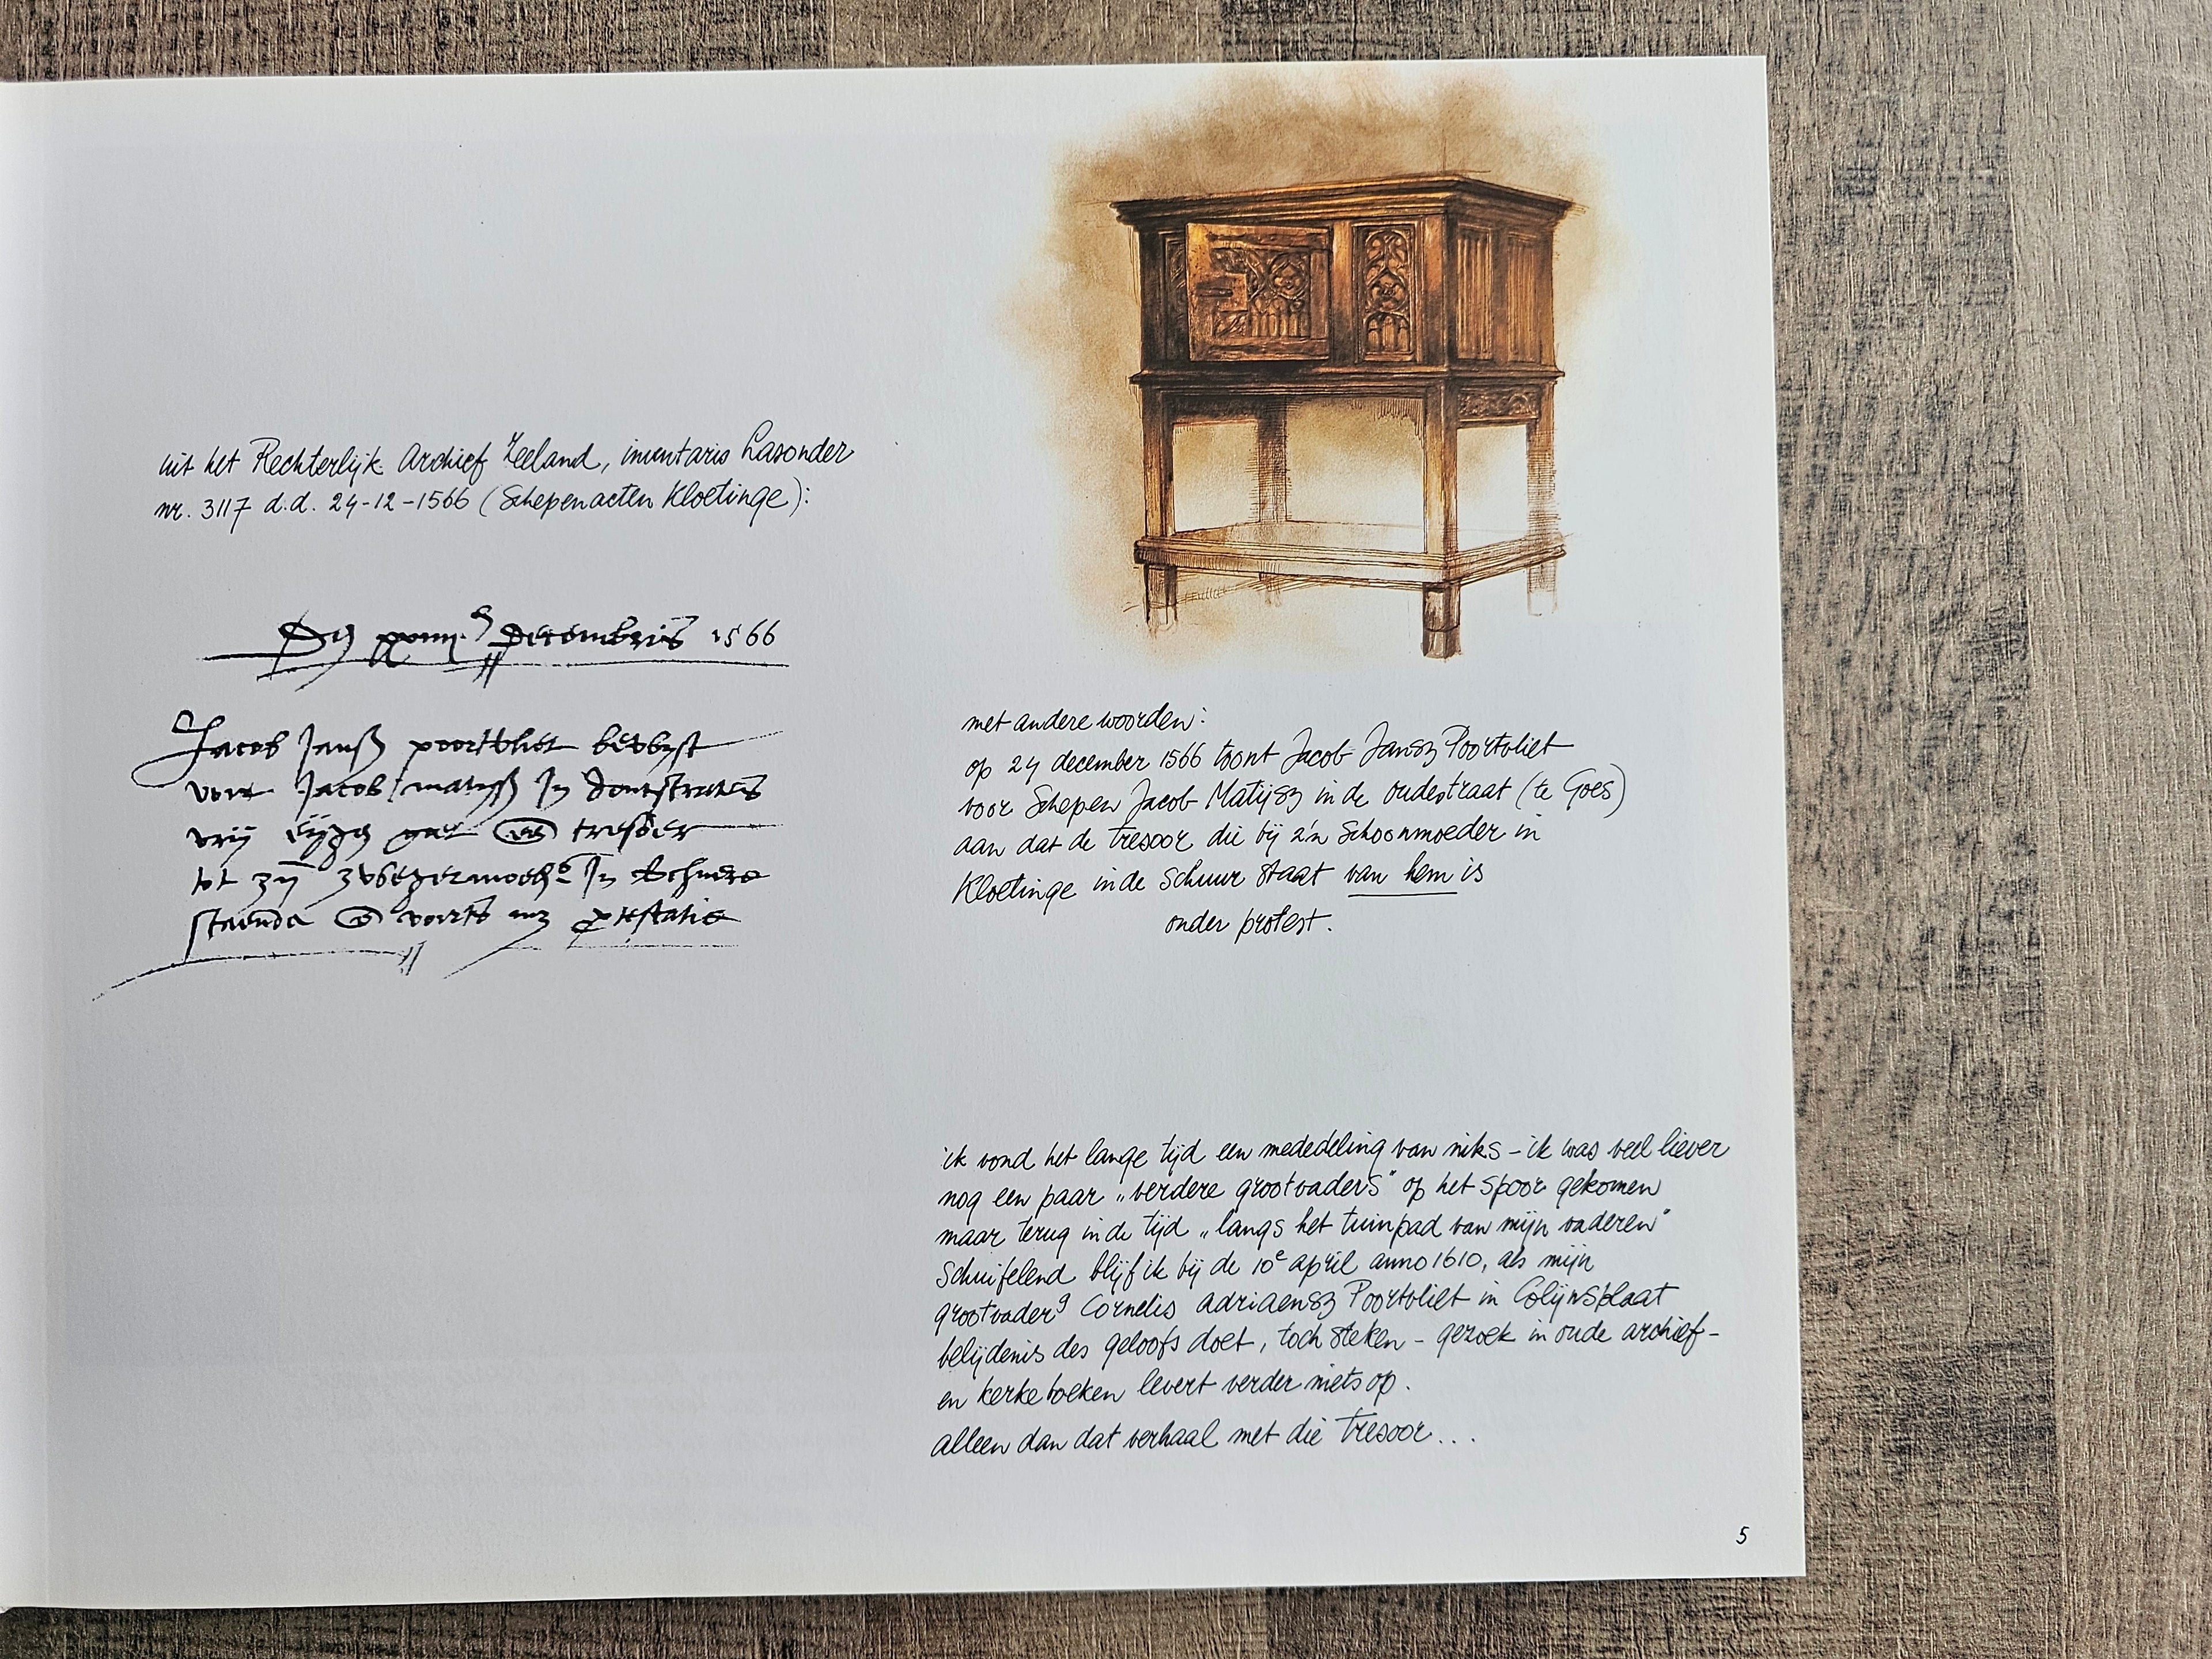 uit het Rechterlijk Archief Zeeland, inventaris Lasonder
nr. 3117 d.d. 24-12-1566 (Schepenacten Kloetinge):
Decembris 1566
Jacob Janß poortvliet
Jacob matijß In
vrij eijgen tresoer
tot zijn In schuere
staende
met andere woorden:
op 24 december 1566 toont Jacob Jansz Poortvliet
voor Schepen Jacob Matijsz in de oudestraat (te Goes)
aan dat de tresoor die bij z'n schoonmoeder in
Kloetinge in de schuur staat van hem is
onder protest.
ik vond het lange tijd een mededeling van niks – ik was veel liever
nog een paar „verdere grootvaders" op het spoor gekomen
maar terug in de tijd „langs het tuinpad van mijn vaderen"
schuifelend blijf ik bij de 10e april anno 1610, als mijn
grootvader9 Cornelis Adriaensz Poortvliet in Colijnsplaat
belijdenis des geloofs doet, toch steken – gezoek in oude archief-
en kerkeboeken levert verder niets op.
alleen dan dat verhaal met die tresoor...
5